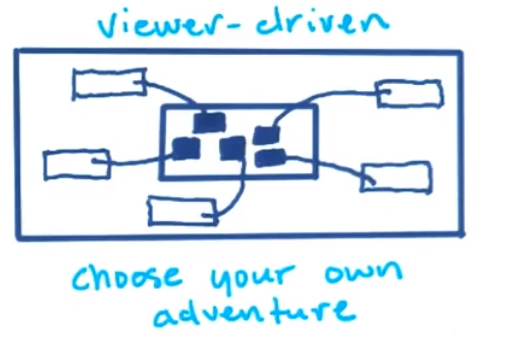 viewer-driven
choose your own
adventure